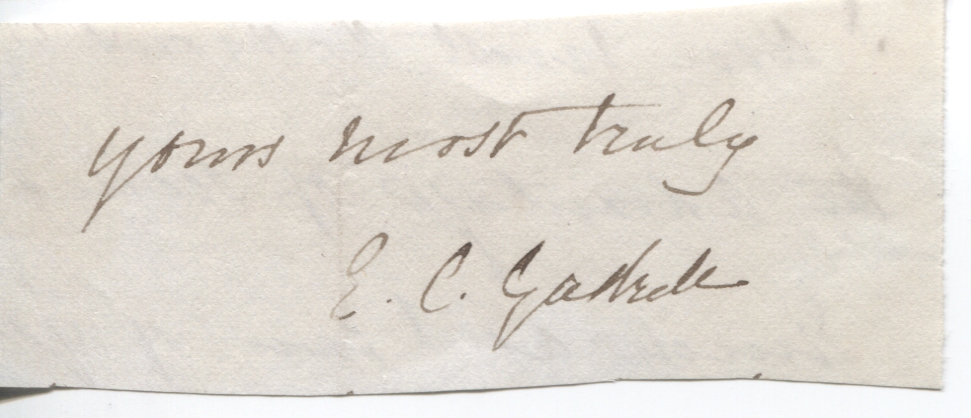 yours most truly
E. C. Gaskell